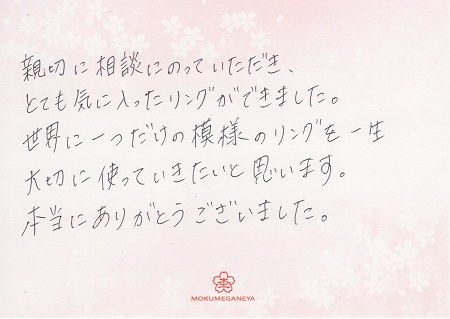 親切に相談にのっていただき、
とても気に入ったリングができました。
世界に一つだけの模様のリングを一生
大切に使っていきたいと思います。
本当にありがとうございました。
MOKUMEGANEYA